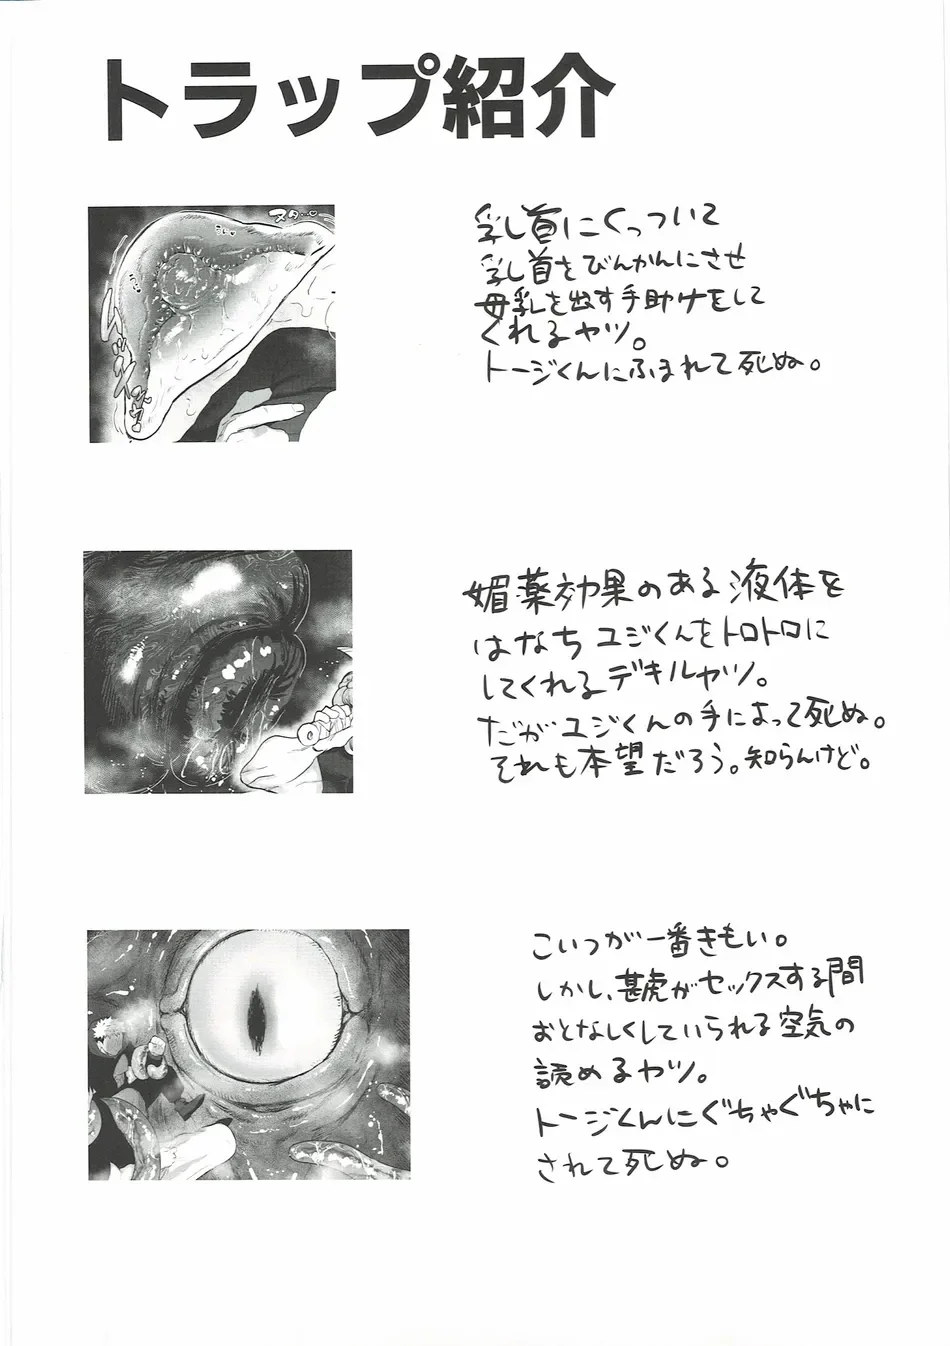 トラップ紹介
乳し首にくっついて
乳し首をびんかんにさせ
母乳を出す手助けをして
くれるヤツ。
トージくんにふまれて死ぬ。
媚薬効果のある液体を
はなちユジくんをトロトロに
してくれるデキルヤツ。
だがユジくんの手によって死ぬ。
それも本望だろう。知らんけど。
こいつが一番きもい。
しかし、甚虎がセックスする間
おとなしくしていられる空気の
読めるヤツ。
トージくんにぐちゃぐちゃに
されて死ぬ。